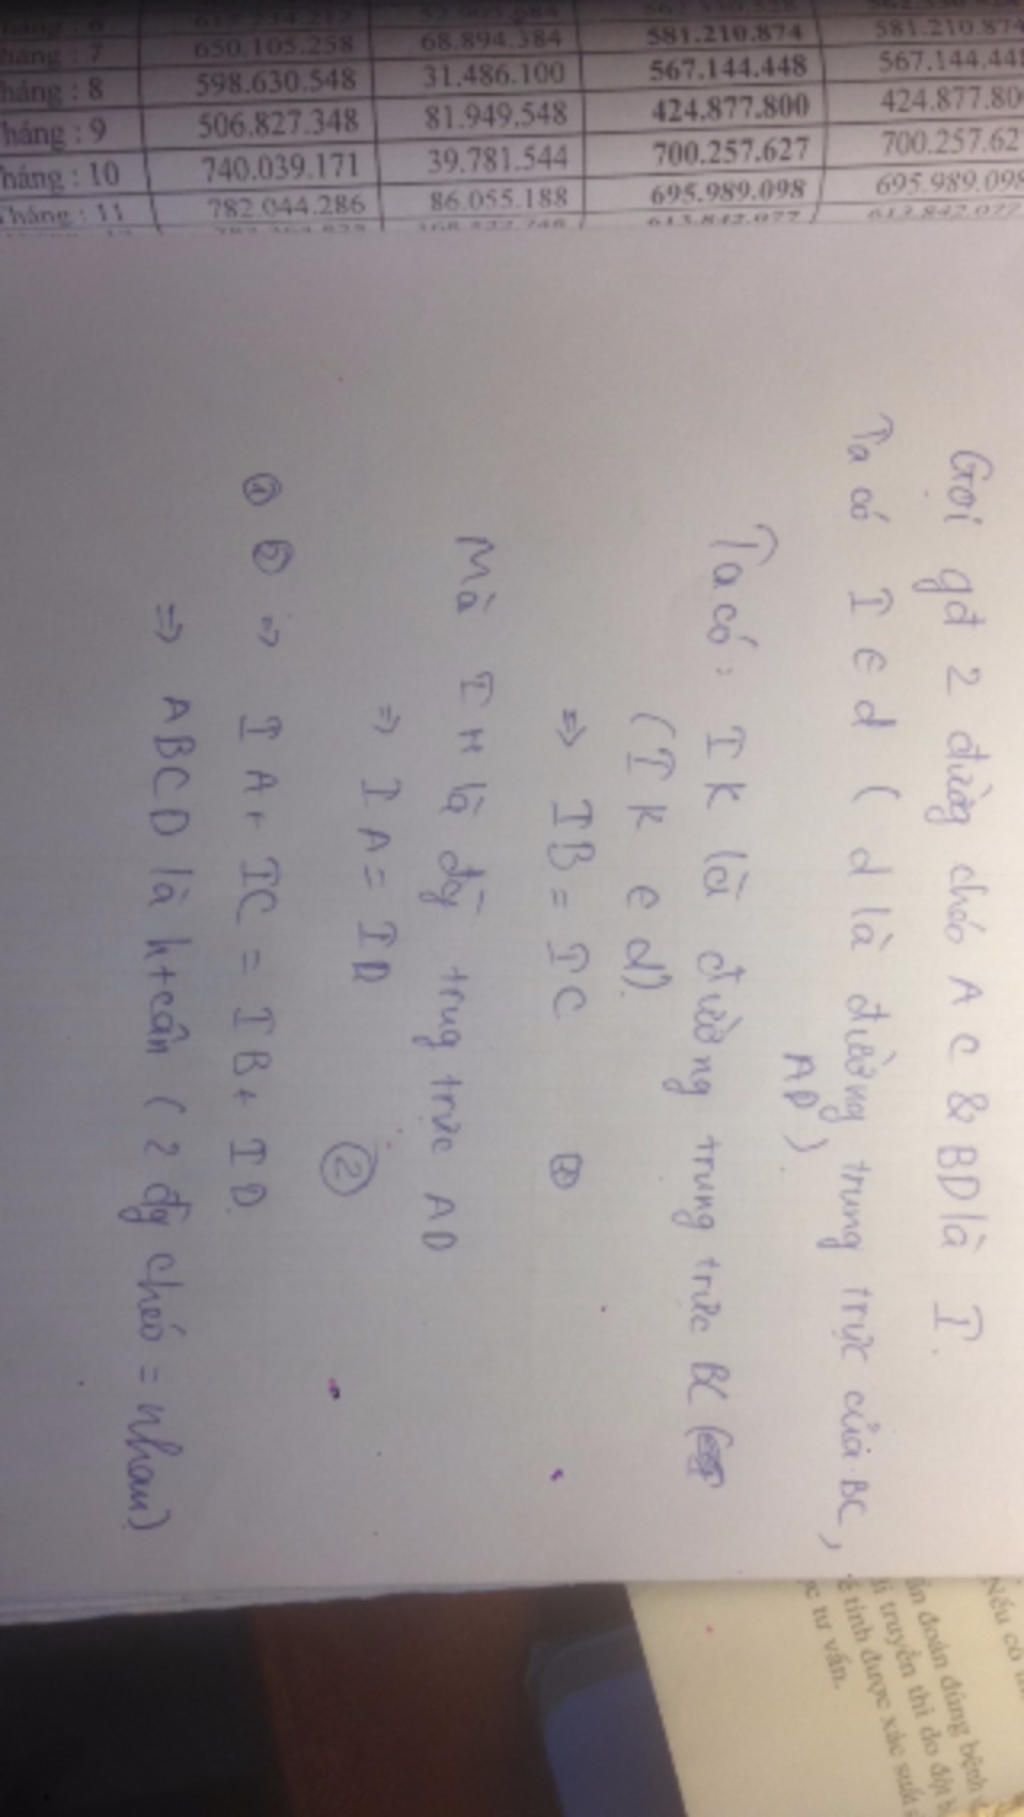 háng : 7 650.105.258 68.894.384 581.210.874 581.210.874
háng : 8 598.630.548 31.486.100 567.144.448 567.144.44
háng : 9 506.827.348 81.949.548 424.877.800 424.877.80
háng : 10 740.039.171 39.781.544 700.257.627 700.257.62
háng : 11 782.044.286 86.055.188 695.989.098 695.989.098
Gọi gđ 2 đường chéo AC & BD là I.
Ta có I ∈ d ( d là đường trung trực của BC,
AD)
Ta có: IK là đường trung trực BC
(IK ∈ d).
⇒ IB = IC
Mà IH là đg trug trực AD
⇒ IA = ID ②
① ② ⇒ IA + IC = IB + ID
⇒ ABCD là h+cân ( 2 đg chéo = nhau)
Nếu có
ẩn đoán đúng bệnh
di truyền thì do đột
tính được xác suất
tư vấn.